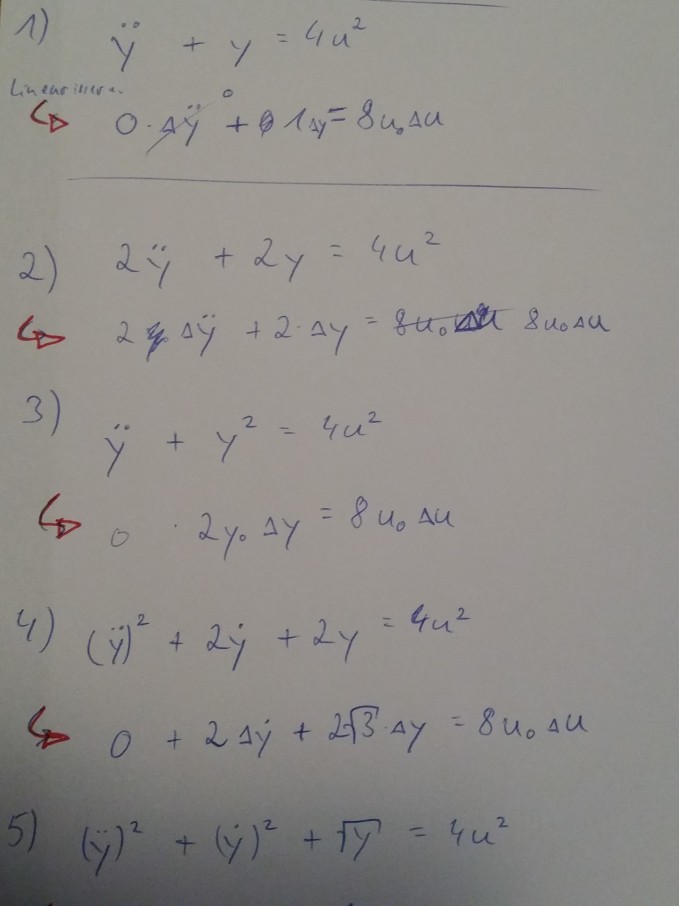 1) ÿ + y = 4u²
Linearisieren
↪ 0 · Δÿ + 1Δy = 8u₀Δu
2) 2ÿ + 2y = 4u²
↪ 2 Δÿ + 2·Δy = 8u₀Δu 8u₀Δu
3) ÿ + y² = 4u²
↪ 0 · 2y₀ Δy = 8u₀ Δu
4) (ÿ)² + 2ẏ + 2y = 4u²
↪ 0 + 2Δẏ + 2√3·Δy = 8u₀Δu
5) (ÿ)² + (ẏ)² + √y = 4u²